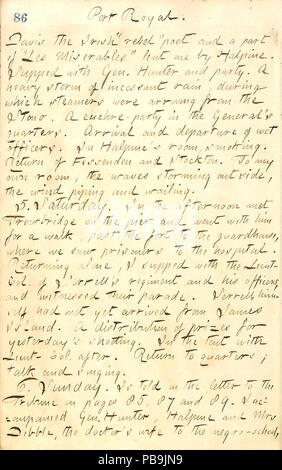 86
Port Royal.
Davis the Irish "rebel" poet and a part
of "Les Miserables" lent me by Halpine.
Supped with Gen. Hunter and party. A
heavy storm of incessant rain, during
which steamers were arriving from the
Stono. A euchre-party in the General's
quarters. Arrival and departure of wet
officers. In Halpine's room, smoking.
Return of Fessenden and Stockton. To my
own room, the waves storming outside,
the wind piping and wailing.
5. Saturday. In the afternoon met
Trowbridge on the pier and went with him
for a walk, past the fort to the guardhouse,
where we saw prisoners to the hospital.
Returning alone, I supped with the Lieut-
Col. of Serrell's regiment and his officers,
and witnessed their parade. Serrell him-
self had not yet arrived from James
Island. A distribution of prizes for
yesterday's shooting. In the tent with
Lieut-Col. after. Return to quarters;
talk and singing.
6. Sunday. As told in the letter to the
Tribune in pages 85, 87 and 89. I ac-
companied Gen. Hunter, Halpine and Mrs
Dibble, the doctor's wife to the negro-school,
alamy
Image ID: PB9JN9
www.alamy.com